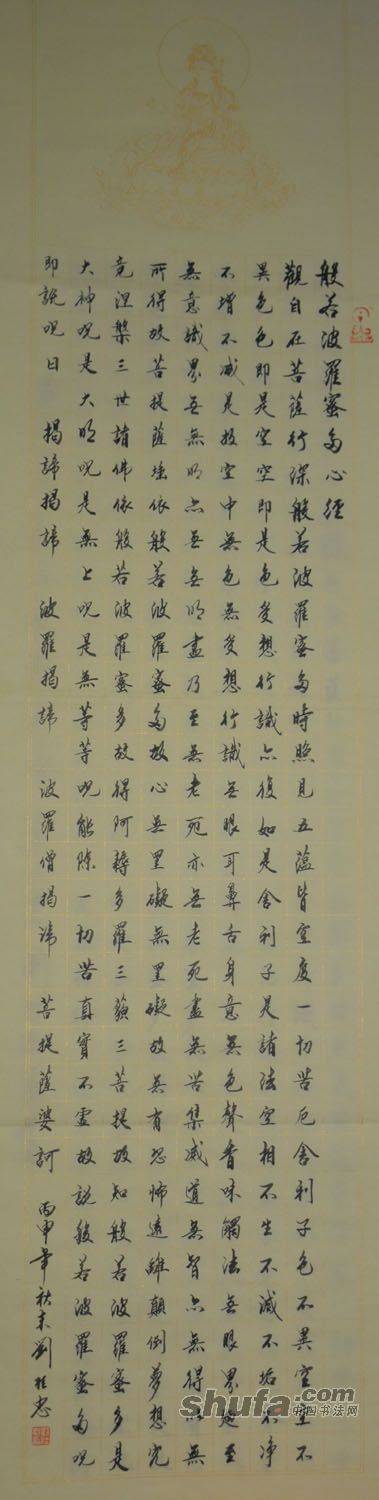 般若波羅蜜多心經
觀自在菩薩行深般若波羅蜜多時照見五蘊皆空度一切苦厄舍利子色不異空空不
異色色即是空空即是色受想行識亦復如是舍利子是諸法空相不生不滅不垢不净
不增不減是故空中無色無受想行識無眼耳鼻舌身意無色聲香味觸法無眼界乃至
無意識界無無明亦無無明盡乃至無老死亦無老死盡無苦集滅道無智亦無得以無
所得故菩提薩埵依般若波羅蜜多故心無罣礙無罣礙故無有恐怖遠離顛倒夢想究
竟涅槃三世諸佛依般若波羅蜜多故得阿耨多羅三藐三菩提故知般若波羅蜜多是
大神咒是大明咒是無上咒是無等等咒能除一切苦真實不虛故說般若波羅蜜多咒
即說咒曰 揭諦揭諦 波羅揭諦 波羅僧揭諦 菩提薩婆訶 丙申年秋末劉桂忠
shufa.com
中国书法网